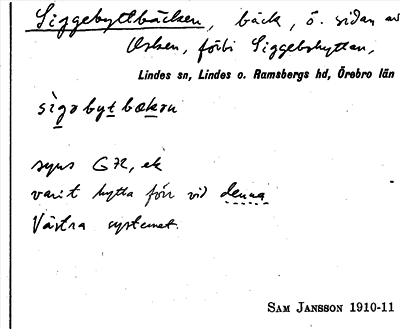 Siggebyttbäcken, bäck, ö. sidan av
Usken, förbi Siggebohyttan,
Lindes sn, Lindes o. Ramsbergs hd, Örebro län
sìgəbytbækən
syns GK, ek
varit hytta förr vid denna
Västra systemet.
SAM JANSSON 1910-11